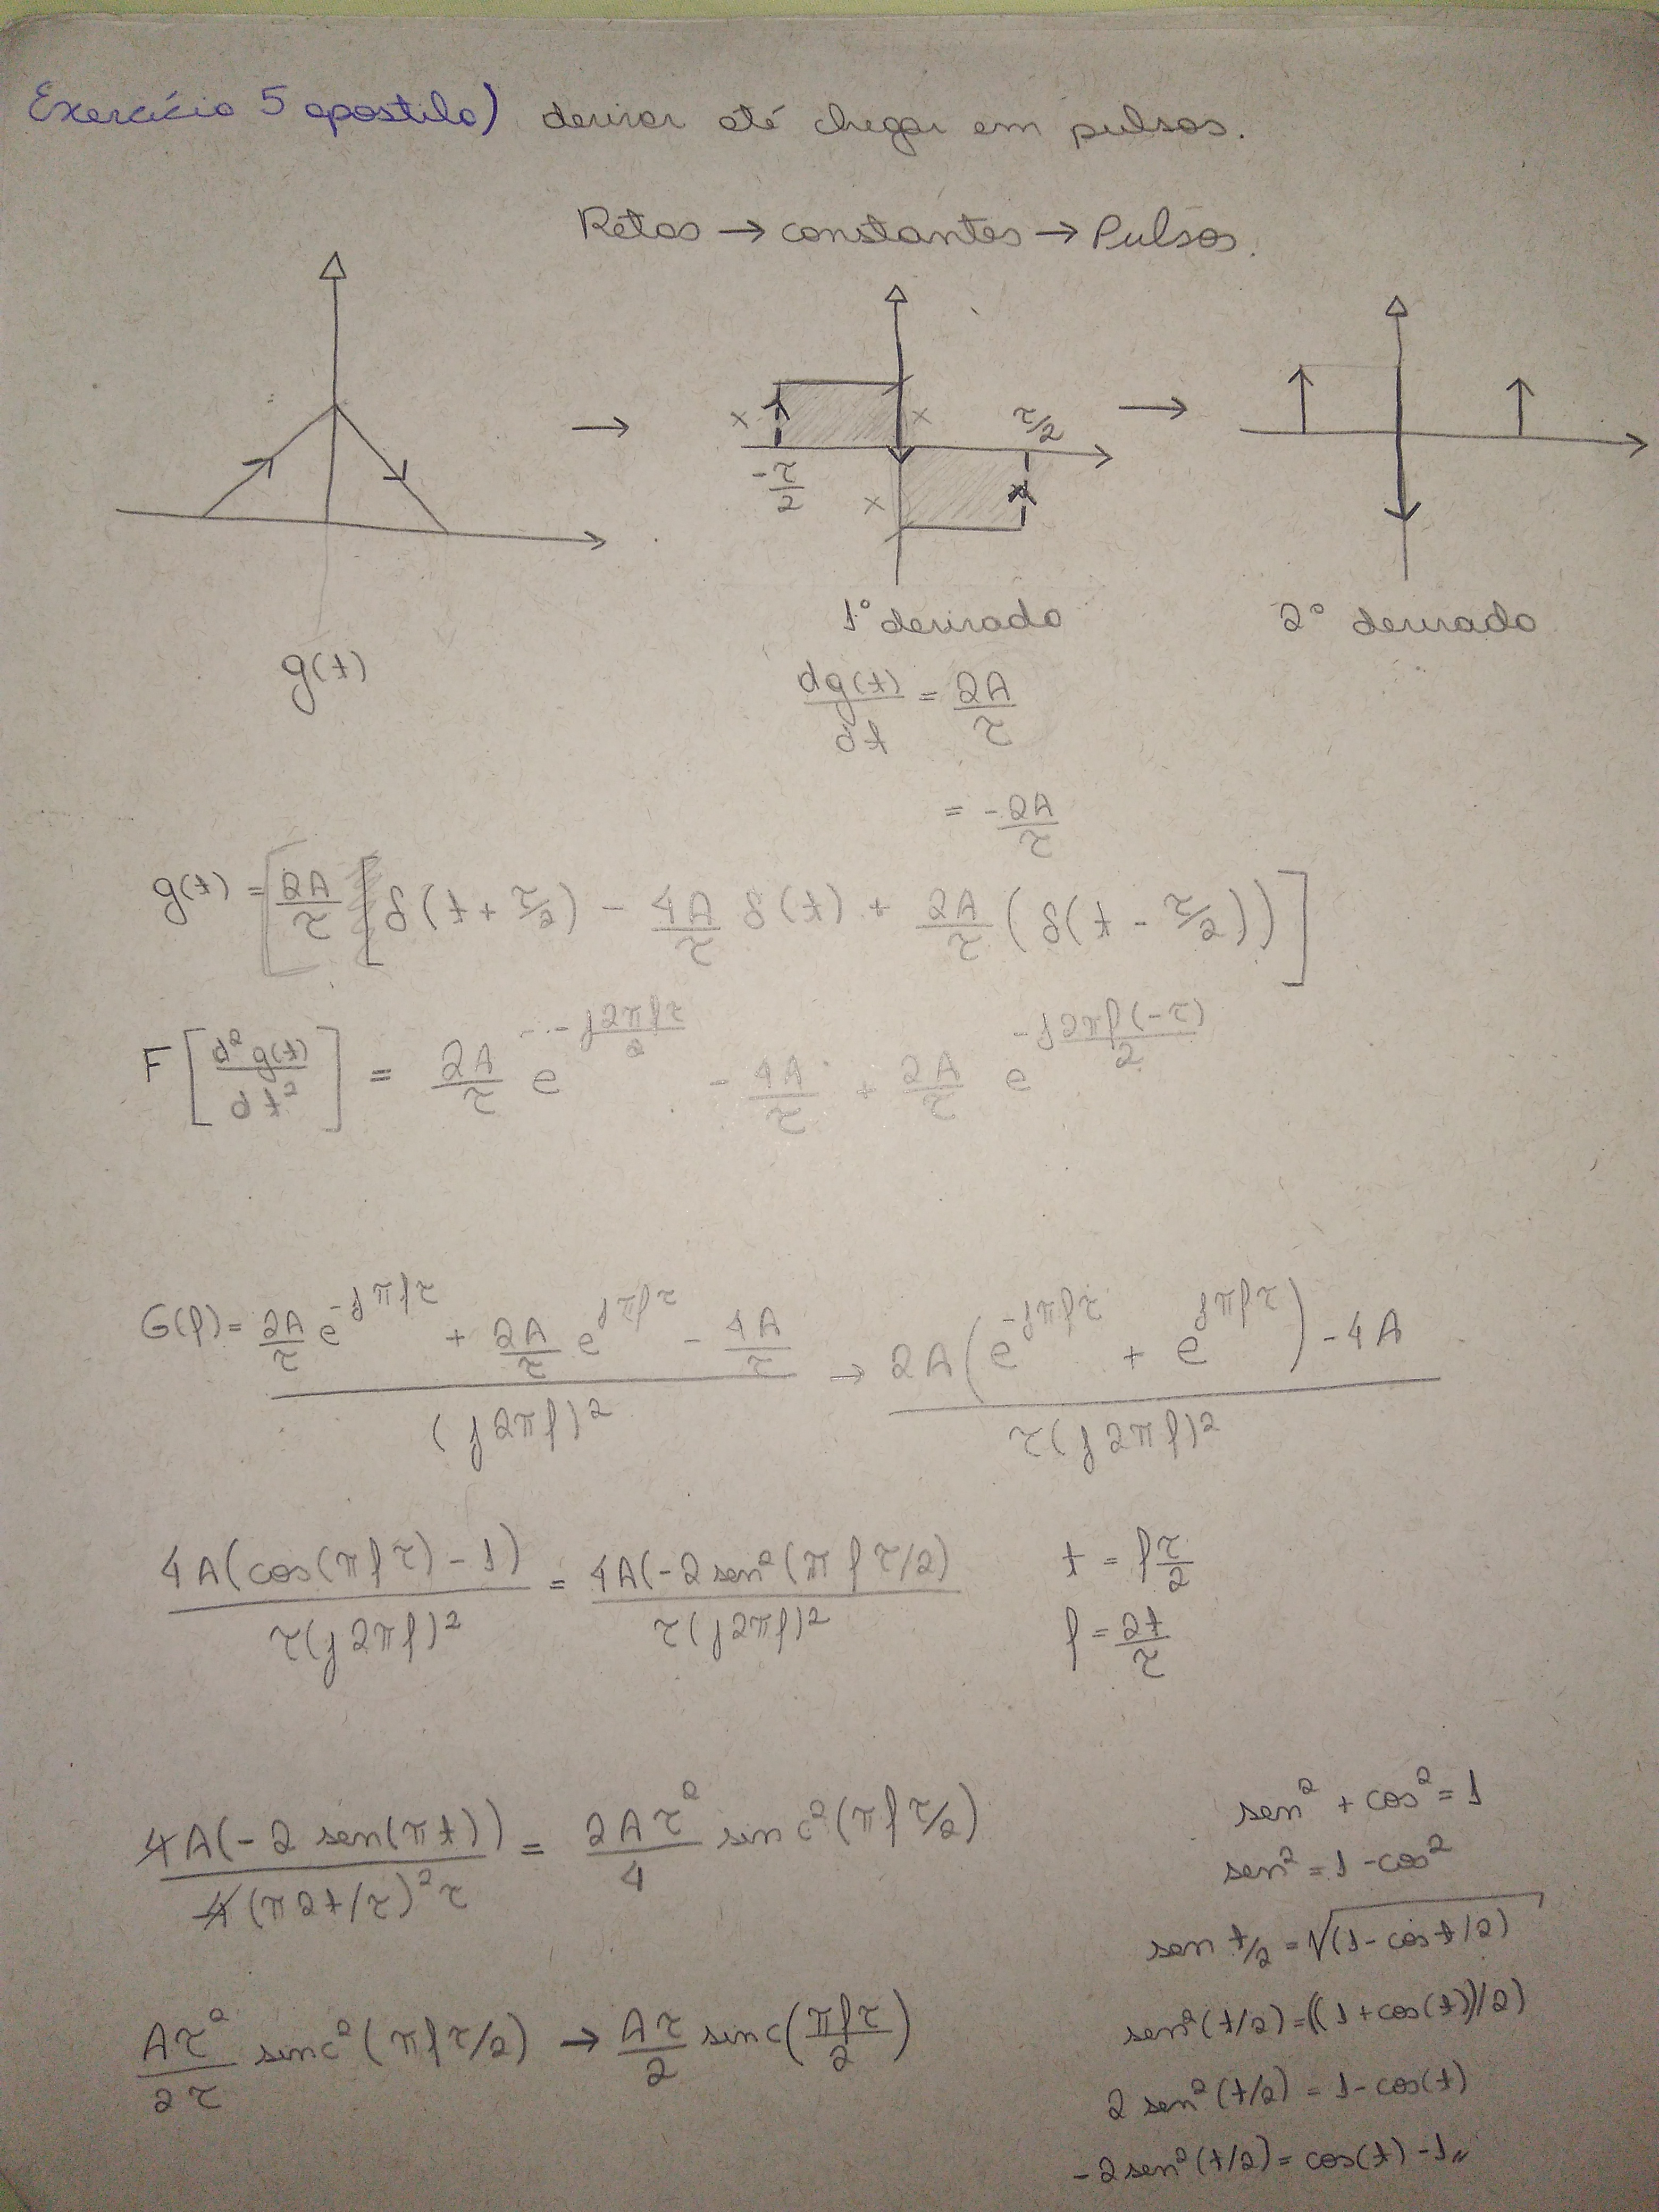 Exercício 5 apostila) derivar até chegar em pulsos.
Retas → constantes → Pulsos.
x x τ/2
-τ/2 x
1° derivada 2° derivada
g(t) dg(t)/dt = 2A/τ
= -2A/τ
g(t) = [2A/τ [δ(t + τ/2) - 4A/τ δ(t) + 2A/τ (δ(t - τ/2))]
F[d²g(t)/dt²] = 2A/τ e^(-j2πfτ/2) - 4A/τ + 2A/τ e^(-j2πf(-τ)/2)
G(f) = (2A/τ e^(-jπfτ) + 2A/τ e^(jπfτ) - 4A/τ)/(j2πf)² → (2A(e^(-jπfτ) + e^(jπfτ)) - 4A)/(τ(j2πf)²)
4A(cos(πfτ) - 1)/(τ(j2πf)²) = 4A(-2sen²(πfτ/2)/(τ(j2πf)²) t = fτ/2
f = 2t/τ
4A(-2 sen(πt))/(-4(π2t/τ)²τ) = 2Aτ²/4 sinc²(πfτ/2)
Aτ²/2τ sinc²(πfτ/2) → Aτ/2 sinc(πfτ/2)
sen² + cos² = 1
sen² = 1 - cos²
sen t/2 = √(1 - cos t/2)
sen²(t/2) = ((1 + cos(t))/2)
2 sen²(t/2) = 1 - cos(t)
-2 sen²(t/2) = cos(t) - 1,,